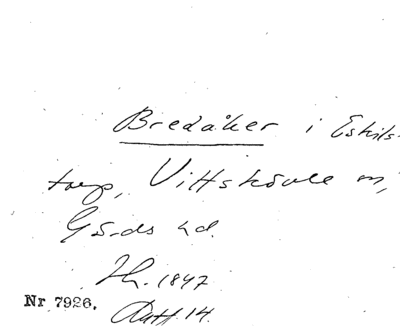 Bredåker i Eskils-
torp, Vittskövle sn,
Gärds hd.
Lh. 1847
Nr 7926.
14.